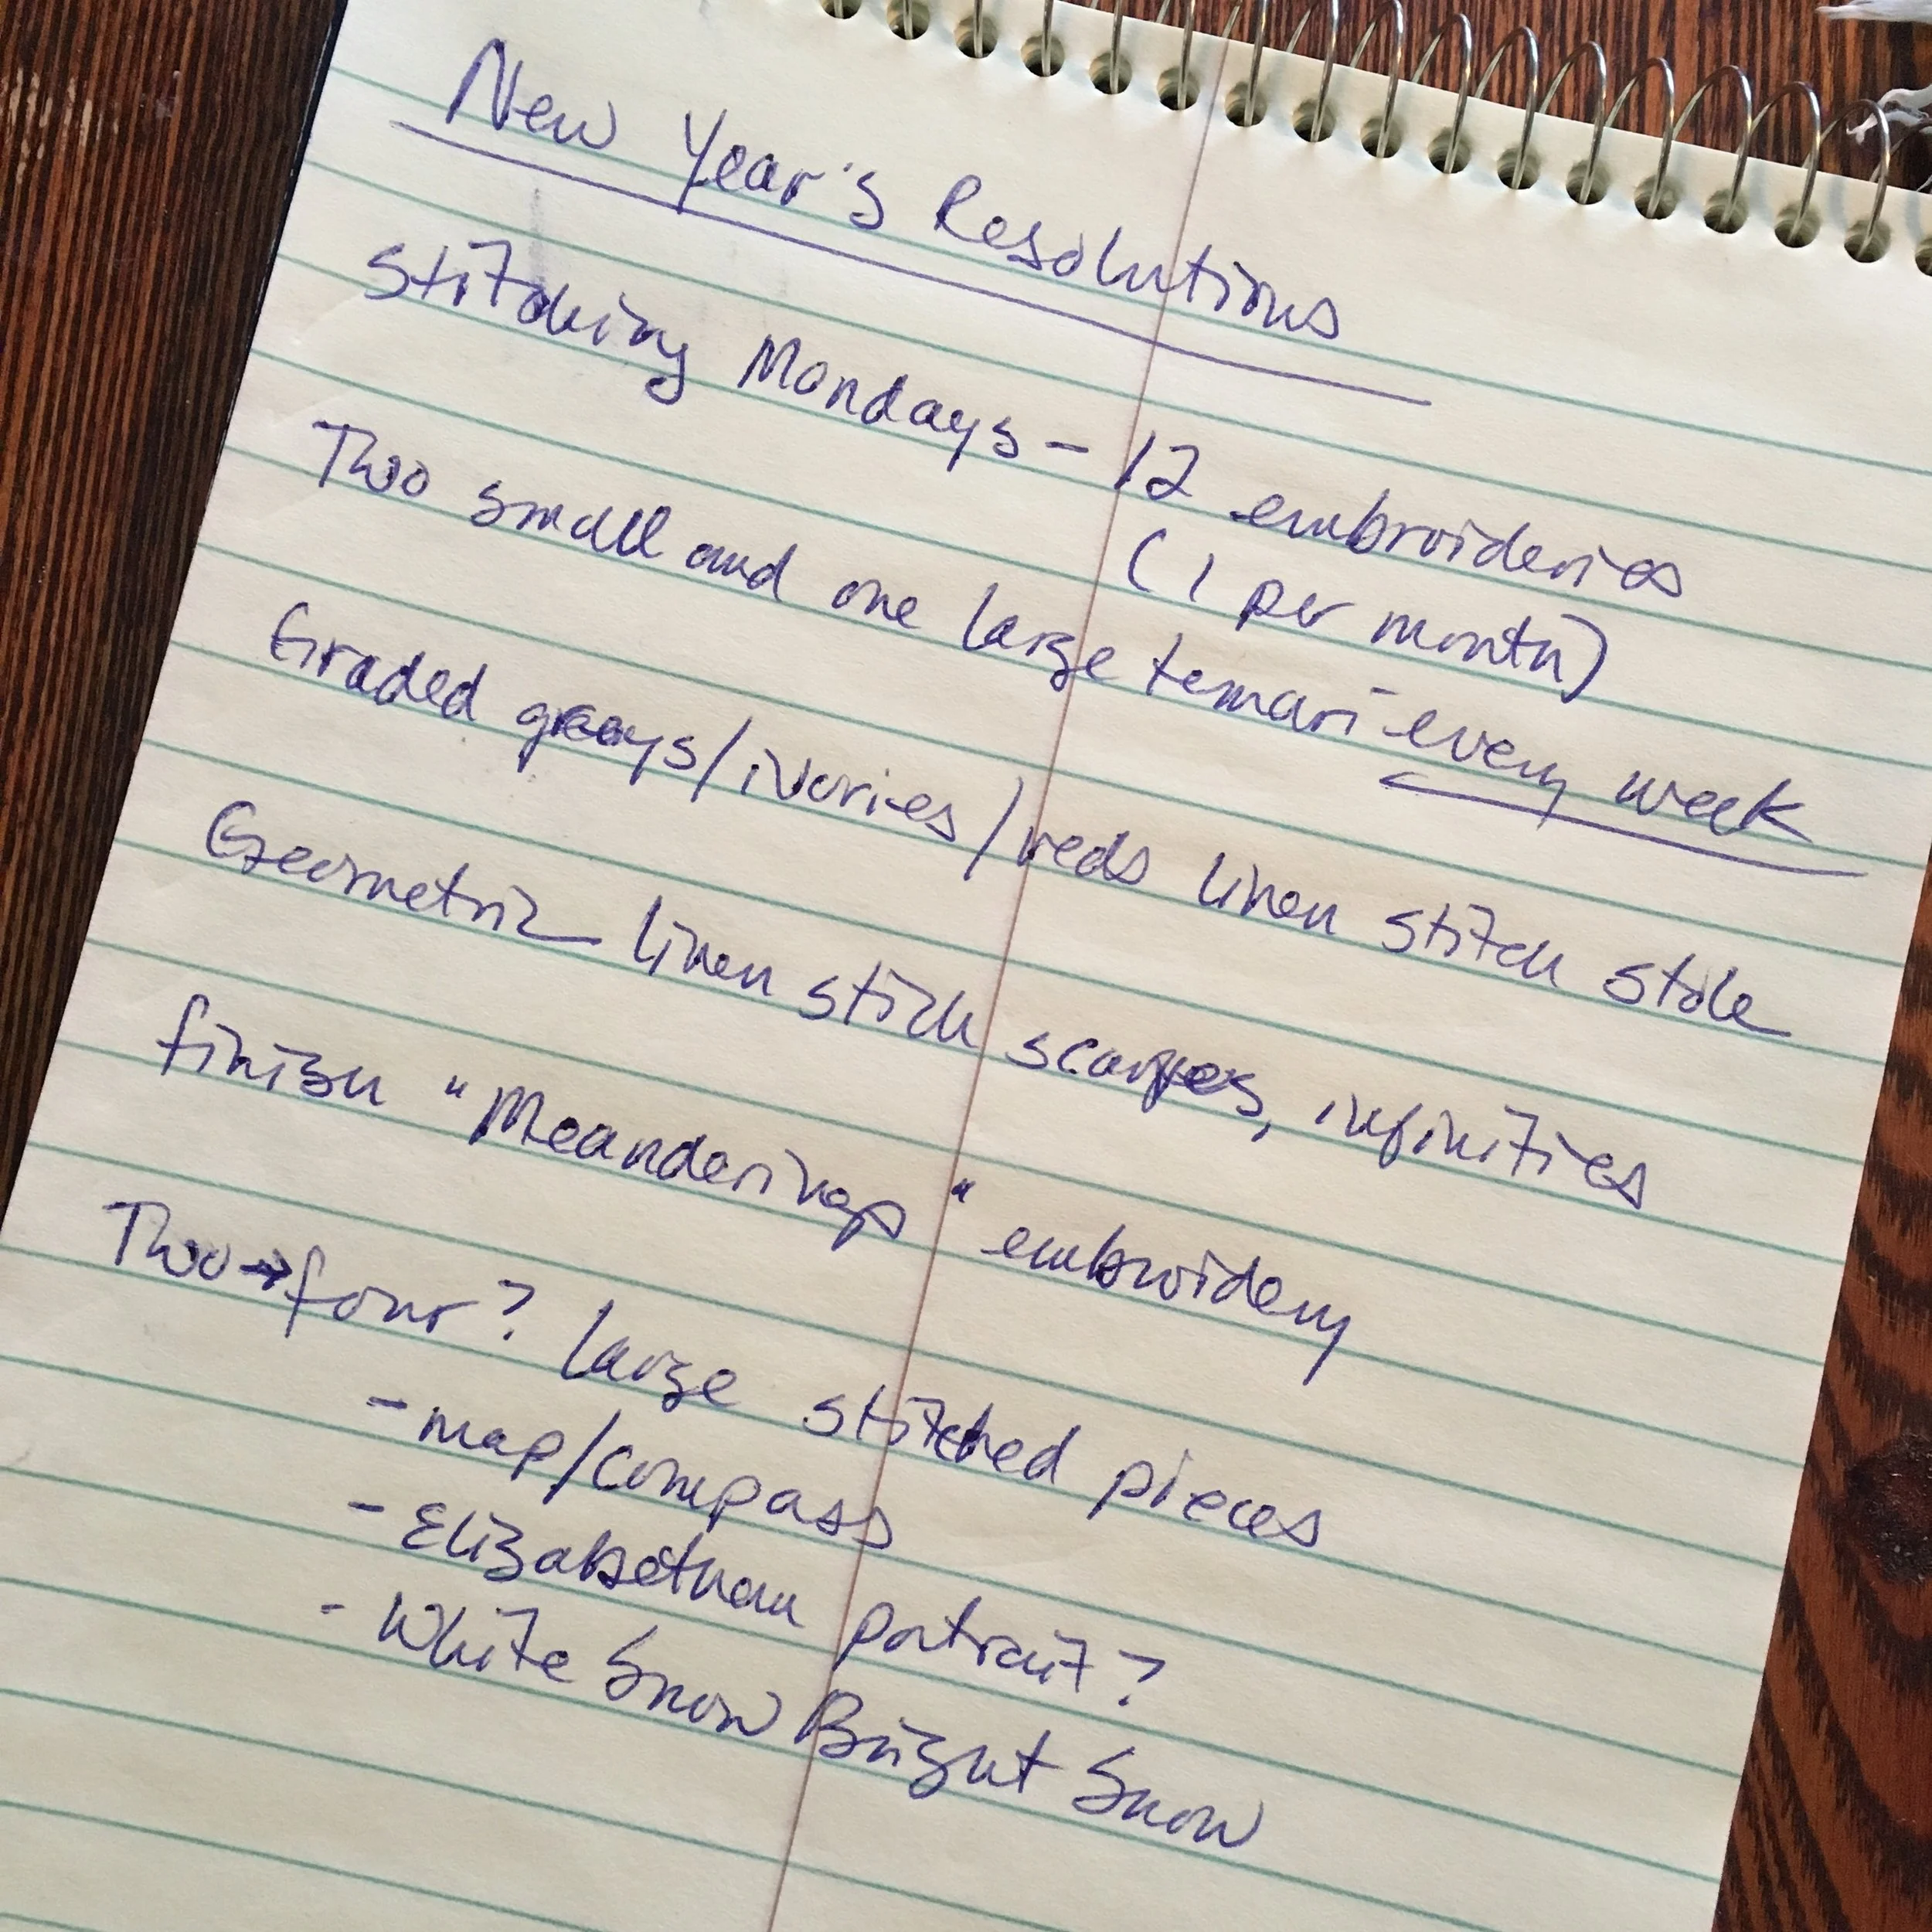 New Year's Resolutions
Stitching Mondays – 12 embroideries
(1 per month)
Two small and one large temari – every week
Graded grays/ivories/reds linen stitch stole
Geometric linen stitch scarves, infinities
finish "Meanderings" embroidery
Two→four? large stitched pieces
- map/compass
- Elizabethan portrait?
- White Snow Bright Snow